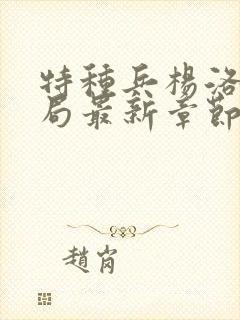 特種兵楊洛
局最新章節
趙崗